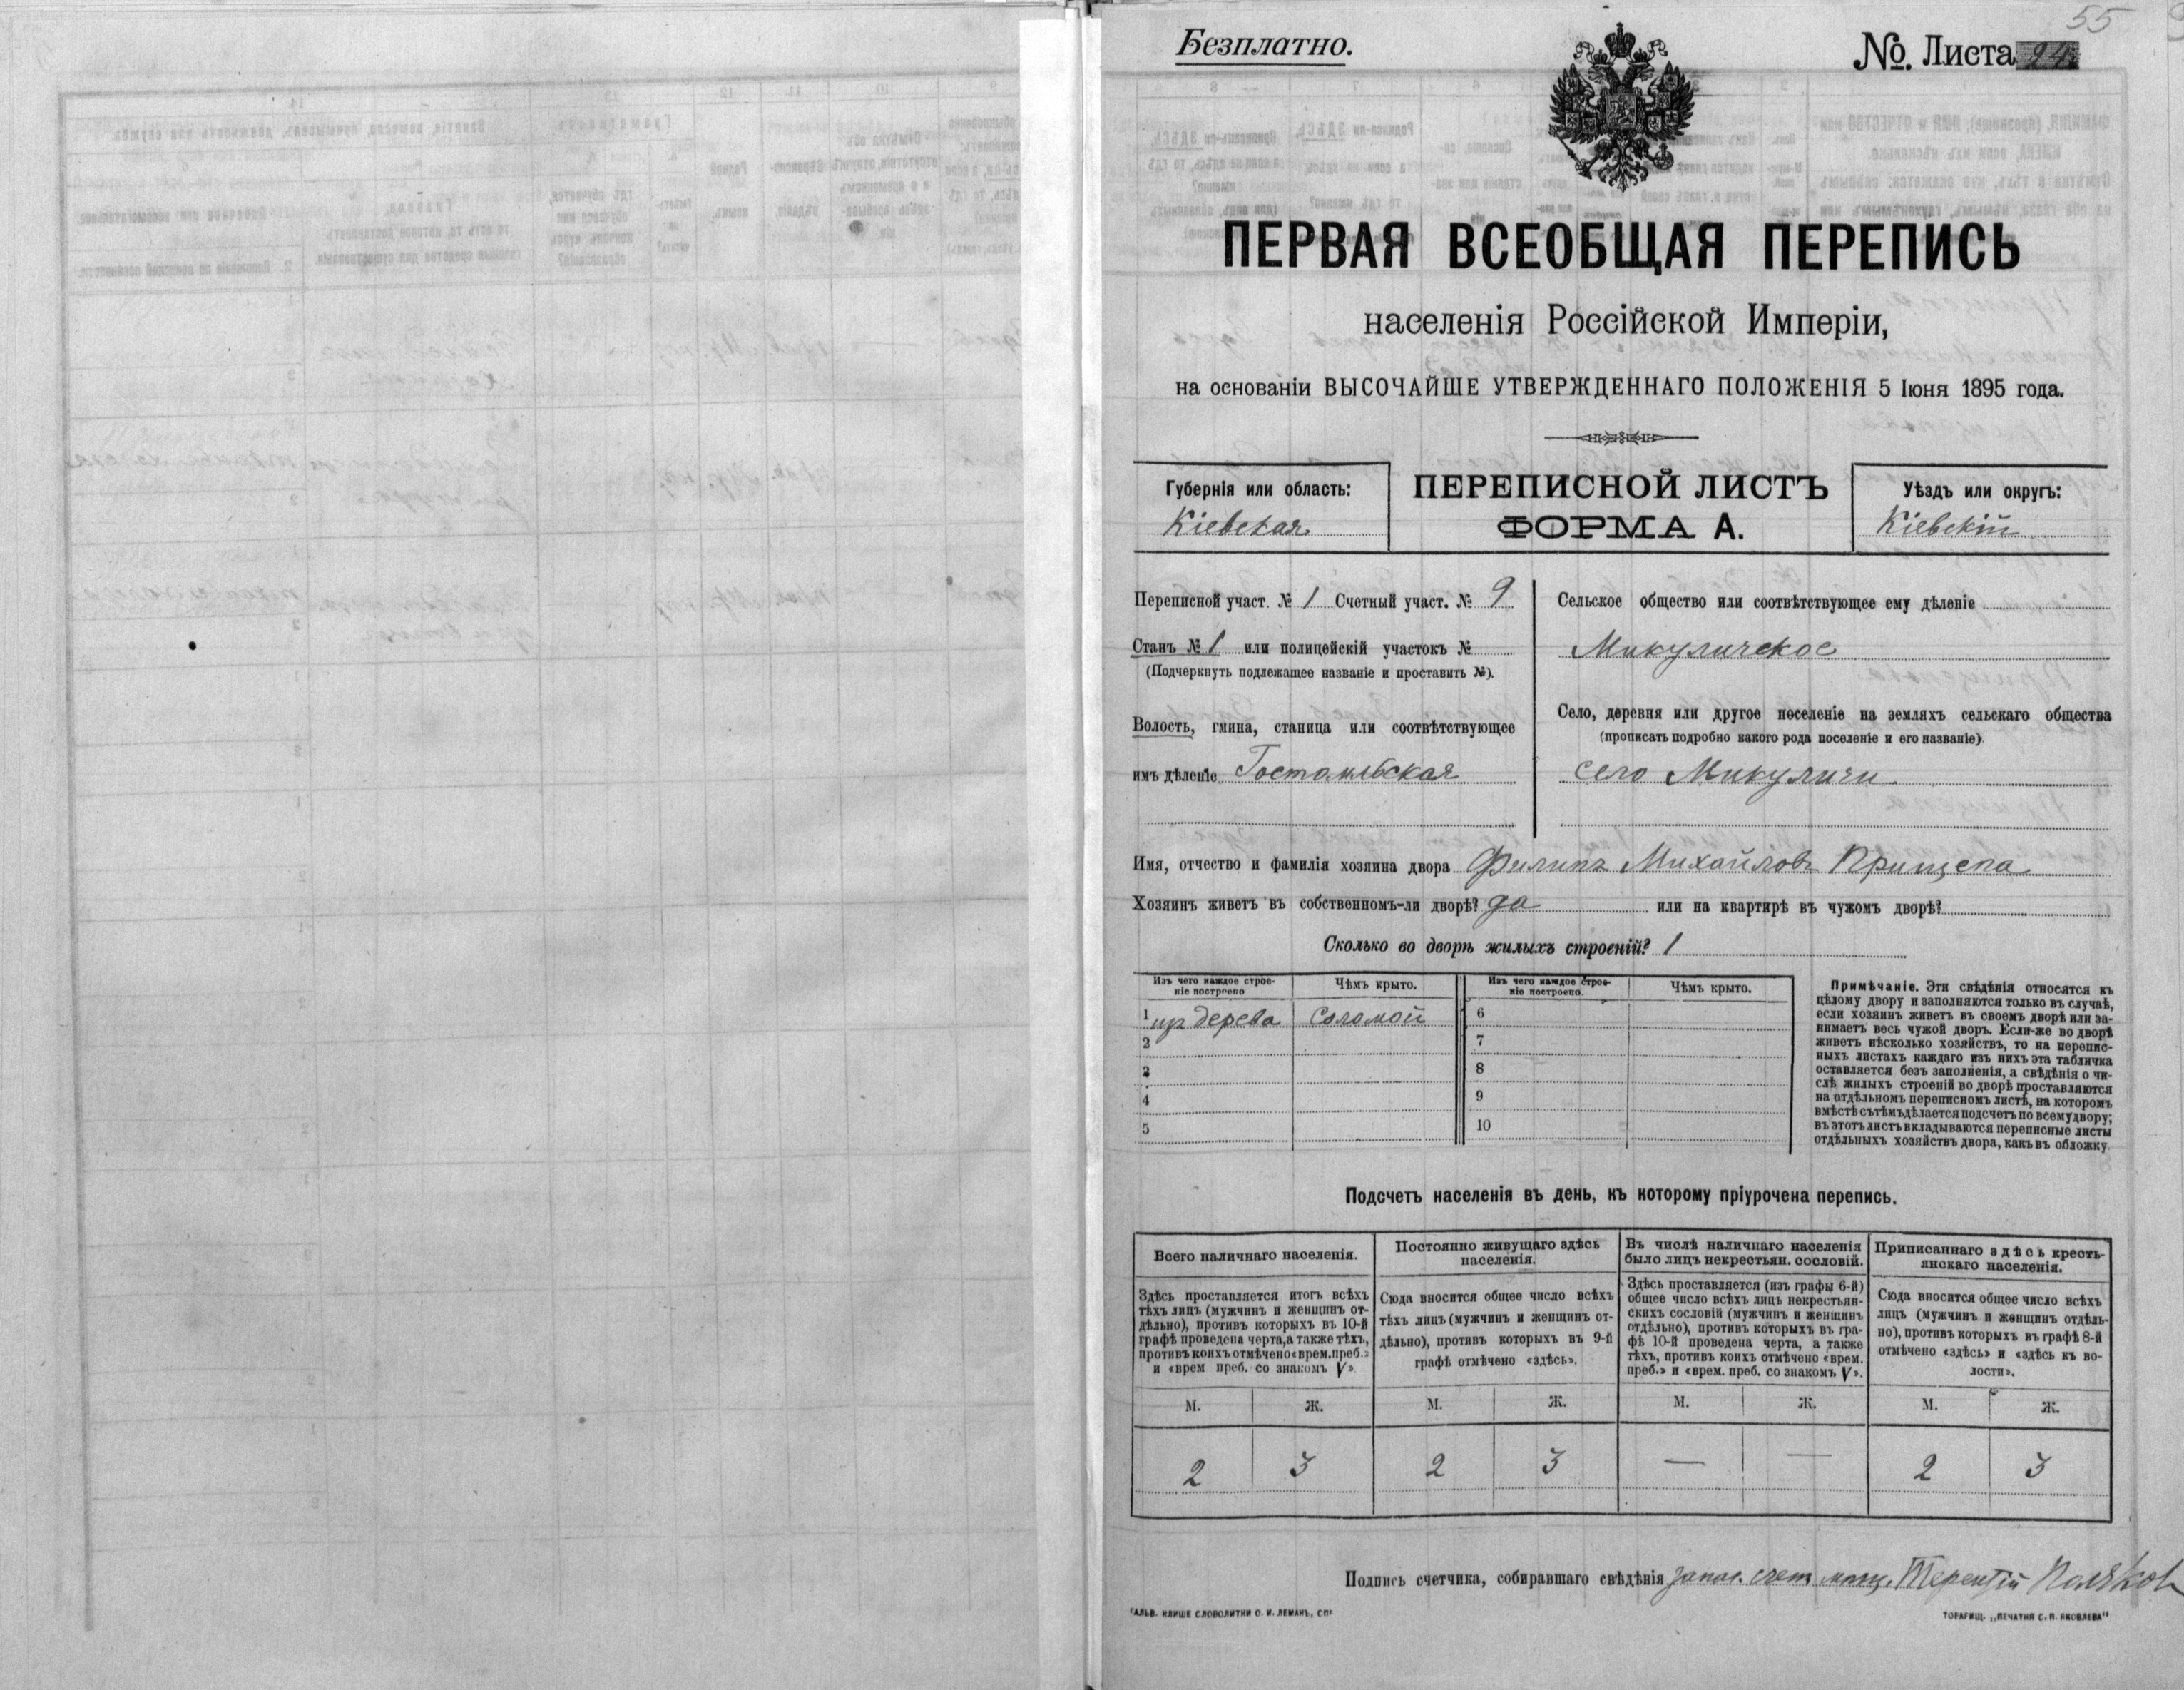 55
Безплатно.
№. Листа 24
ПЕРВАЯ ВСЕОБЩАЯ ПЕРЕПИСЬ
населенія Россійской Имперіи,
на основаніи ВЫСОЧАЙШЕ УТВЕРЖДЕННАГО ПОЛОЖЕНІЯ 5 Іюня 1895 года.
Губернія или область:
Кіевская
ПЕРЕПИСНОЙ ЛИСТЪ
ФОРМА А.
Уѣздъ или округъ:
Кіевскій
Переписной участ. № 1 Счетный участ. № 9
Станъ № 1 или полицейскій участокъ №
(Подчеркнуть подлежащее названіе и проставить №).
Волость, гмина, станица или соотвѣтствующее
имъ дѣленіе Гостомльская
Сельское общество или соотвѣтствующее ему дѣленіе
Микуличское
Село, деревня или другое поселеніе на земляхъ сельскаго общества
(прописать подробно какого рода поселеніе и его названіе).
село Микуличи
Имя, отчество и фамилія хозяина двора Филипъ Михайловъ Прищепа
Хозяинъ живетъ въ собственномъ-ли дворѣ? да или на квартирѣ въ чужомъ дворѣ?
Сколько во дворѣ жилыхъ строеній? 1
Изъ чего каждое строе-
ніе построено
Чѣмъ крыто.
Изъ чего каждое строе-
ніе построено.
Чѣмъ крыто.
1 изъ дерева соломой 6
2 7
3 8
4 9
5 10
Примѣчаніе. Эти свѣдѣнія относятся къ
цѣлому двору и заполняются только въ случаѣ,
если хозяинъ живетъ въ своемъ дворѣ или за-
нимаетъ весь чужой дворъ. Если-же во дворѣ
живетъ нѣсколько хозяйствъ, то на перепис-
ныхъ листахъ каждаго изъ нихъ эта табличка
оставляется безъ заполненія, а свѣдѣнія о чи-
слѣ жилыхъ строеній во дворѣ проставляются
на отдѣльномъ переписномъ листѣ, на которомъ
вмѣстѣ съ тѣмъ дѣлается подсчетъ по всему двору;
въ этотъ листъ вкладываются переписные листы
отдѣльныхъ хозяйствъ двора, какъ въ обложку.
Подсчетъ населенія въ день, къ которому пріурочена перепись.
Всего наличнаго населенія.
Здѣсь проставляется итогъ всѣхъ
тѣхъ лицъ (мужчинъ и женщинъ от-
дѣльно), противъ которыхъ въ 10-й
графѣ проведена черта, а также тѣхъ,
противъ коихъ отмѣчено «врем. преб.»
и «врем преб. со знакомъ V».
Постоянно живущаго здѣсь
населенія.
Сюда вносится общее число всѣхъ
тѣхъ лицъ (мужчинъ и женщинъ от-
дѣльно), противъ которыхъ въ 9-й
графѣ отмѣчено «здѣсь».
Въ числѣ наличнаго населенія
было лицъ некрестьян. сословій.
Здѣсь проставляется (изъ графы 6-й)
общее число всѣхъ лицъ некрестьян-
скихъ сословій (мужчинъ и женщинъ
отдѣльно), противъ которыхъ въ гра-
фѣ 10-й проведена черта, а также
тѣхъ, противъ коихъ отмѣчено «врем.
преб.» и «врем. преб. со знакомъ V».
Приписаннаго здѣсь кресть-
янскаго населенія.
Сюда вносится общее число всѣхъ
лицъ (мужчинъ и женщинъ отдѣль-
но), противъ которыхъ въ графѣ 8-й
отмѣчено «здѣсь» и «здѣсь къ во-
лости».
М. Ж. М. Ж. М. Ж. М. Ж.
2 3 2 3 — — 2 3
Подпись счетчика, собиравшаго свѣдѣнія Терентій Поляков
ГАЛЬВ. КЛИШЕ СЛОВОЛИТНИ О. И. ЛЕМАНЪ, СПБ
ТОВАРИЩ. „ПЕЧАТНЯ С. П. ЯКОВЛЕВА"